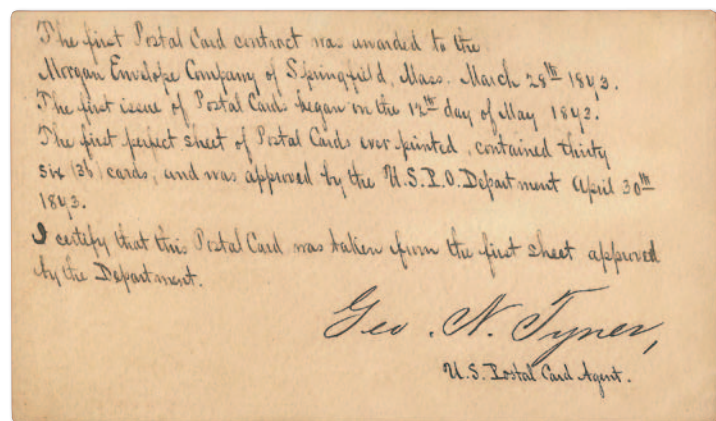 The first Postal Card contract was awarded to the
Morgan Envelope Company of Springfield, Mass. March 28th 1873.
The first issue of Postal Cards began on the 12th day of May 1873.
The first perfect sheet of Postal Cards ever printed, contained thirty
six (36) cards, and was approved by the U.S.P.O. Department April 30th
1873.
I certify that this Postal Card was taken from the first sheet approved
by the Department.
Geo. N. Tyner,
U.S. Postal Card Agent.